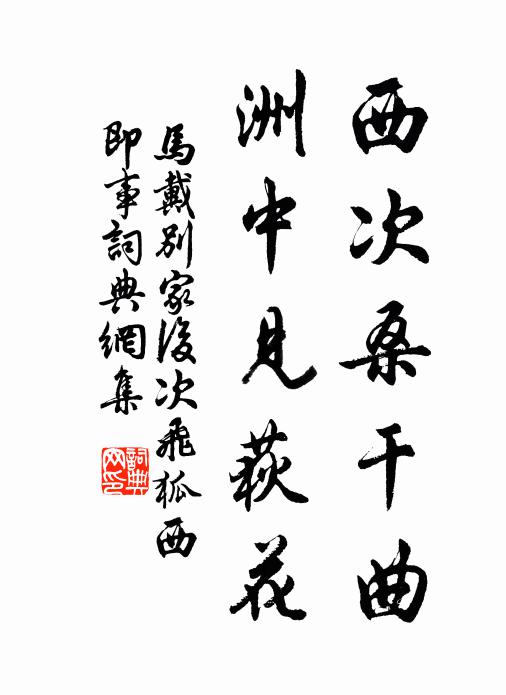 西次桑干曲
洲中見荻花
馬戴別家後次飛狐西
即事詞典網集
詞典网印